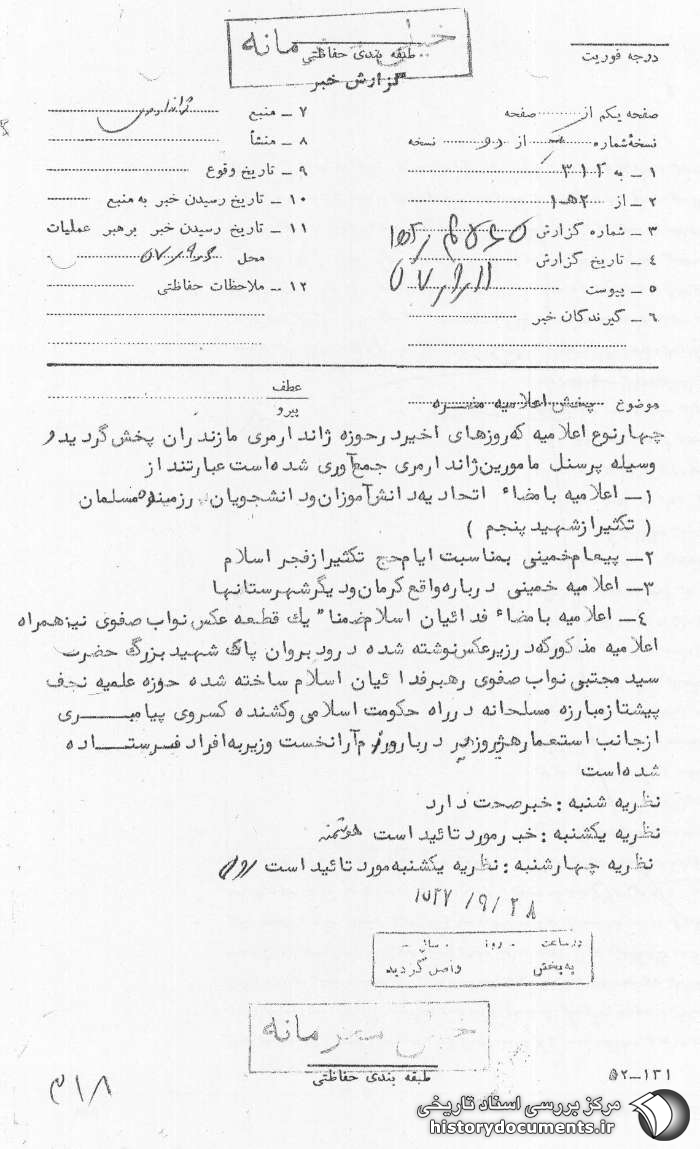 خیلی محرمانه
طبقه بندی حفاظتی
گزارش خبر
درجه فوریت
صفحه یکم از صفحه
نسخه شماره از نسخه
۱ ـ به ۳۱۲
۲ ـ از ۲هـ۱
۳ ـ شماره گزارش
۴ ـ تاریخ گزارش
۵ ـ پیوست
۶ ـ گیرندگان خبر
۷ ـ منبع
۸ ـ منشأ
۹ ـ تاریخ وقوع
۱۰ ـ تاریخ رسیدن خبر به منبع
۱۱ ـ تاریخ رسیدن خبر برهبر عملیات
محل
۱۲ ـ ملاحظات حفاظتی
موضوع پخش اعلامیه مضره
عطف
پیرو
چهارنوع اعلامیه که روزهای اخیر در حوزه ژاندارمری مازندران پخش گردیده و
وسیله پرسنل مامورین ژاندارمری جمع آوری شده است عبارتند از
۱ـ اعلامیه بامضاء اتحادیه دانش آموزان و دانشجویان رزمنده مسلمان
( تکثیر از شهید پنجم )
۲ـ پیعام خمینی بمناسبت ایام حج تکثیر از فجر اسلام
۳ـ اعلامیه خمینی درباره واقع کرمان و دیگر شهرستانها
۴ـ اعلامیه بامضاء فدائیان اسلام ضمنا" یک قطعه عکس نواب صفوی نیز همراه
اعلامیه مذکور که در زیر عکس نوشته شده درود بروان پاک شهید بزرگ حضرت
سید مجتبی نواب صفوی رهبر فدائیان اسلام ساخته شده حوزه علمیه نجف
پیشتاز مبارزه مسلحانه در راه حکومت اسلامی و کشنده کسروی پیامبری
از جانب استعمار هژیر وزیر دربار و رزم آرا نخست وزیر به افراد فرستاده
شده است
نظریه شنبه : خبر صحت دارد
نظریه یکشنبه : خبر مورد تائید است
نظریه چهارشنبه : نظریه یکشنبه مورد تائید است
در ساعت روز سال
به بخش واصل گردید
خیلی محرمانه
طبقه بندی حفاظتی
۵۲ـ۱۳۱
۳۱۸
مرکز بررسی اسناد تاریخی
historydocuments.ir